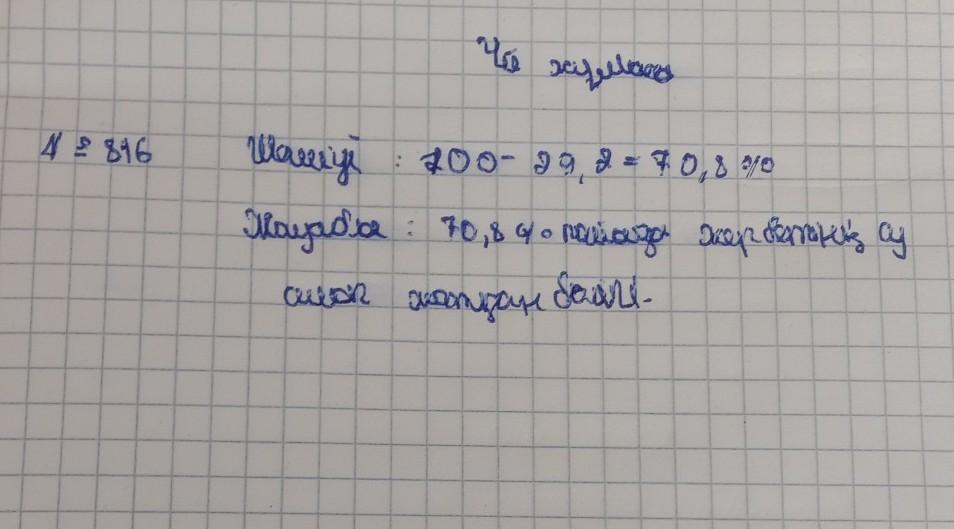 Үй жұмысы
№ 816 Шешуі : 100 - 29,2 = 70,8 %
Жауабы : 70,8 % пайызы жер бетінің су
алып жатқан бөлігі.